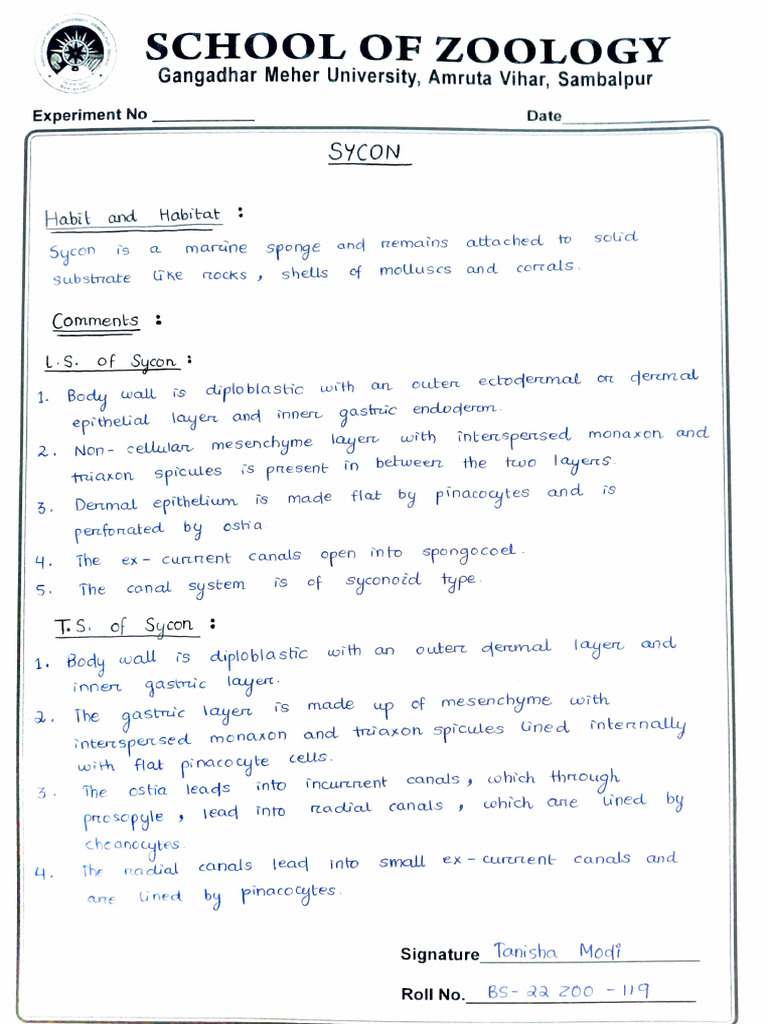 SCHOOL OF ZOOLOGY
Gangadhar Meher University, Amruta Vihar, Sambalpur
Experiment No
Date
SYCON
Habit and Habitat :
Sycon is a marine sponge and remains attached to solid
substrate like rocks, shells of molluscs and corrals.
Comments :
L.S. of Sycon :
1. Body wall is diploblastic with an outer ectodermal or dermal
epithelial layer and inner gastric endoderm.
2. Non-cellular mesenchyme layer with interspersed monaxon and
triaxon spicules is present in between the two layers.
3. Dermal epithelium is made flat by pinacocytes and is
perforated by ostia
4. The ex-current canals open into spongocoel.
5. The canal system is of syconoid type.
T.S. of Sycon :
1. Body wall is diploblastic with an outer dermal layer and
inner gastric layer.
2. The gastric layer is made up of mesenchyme with
interspersed monaxon and triaxon spicules lined internally
with flat pinacocyte cells.
3. The ostia leads into incurrent canals, which through
prosopyle, lead into radial canals, which are lined by
cheanocytes.
4. The radial canals lead into small ex-current canals and
are lined by pinacocytes.
Signature Tanisha Modi
Roll No. BS-22 ZOO-119